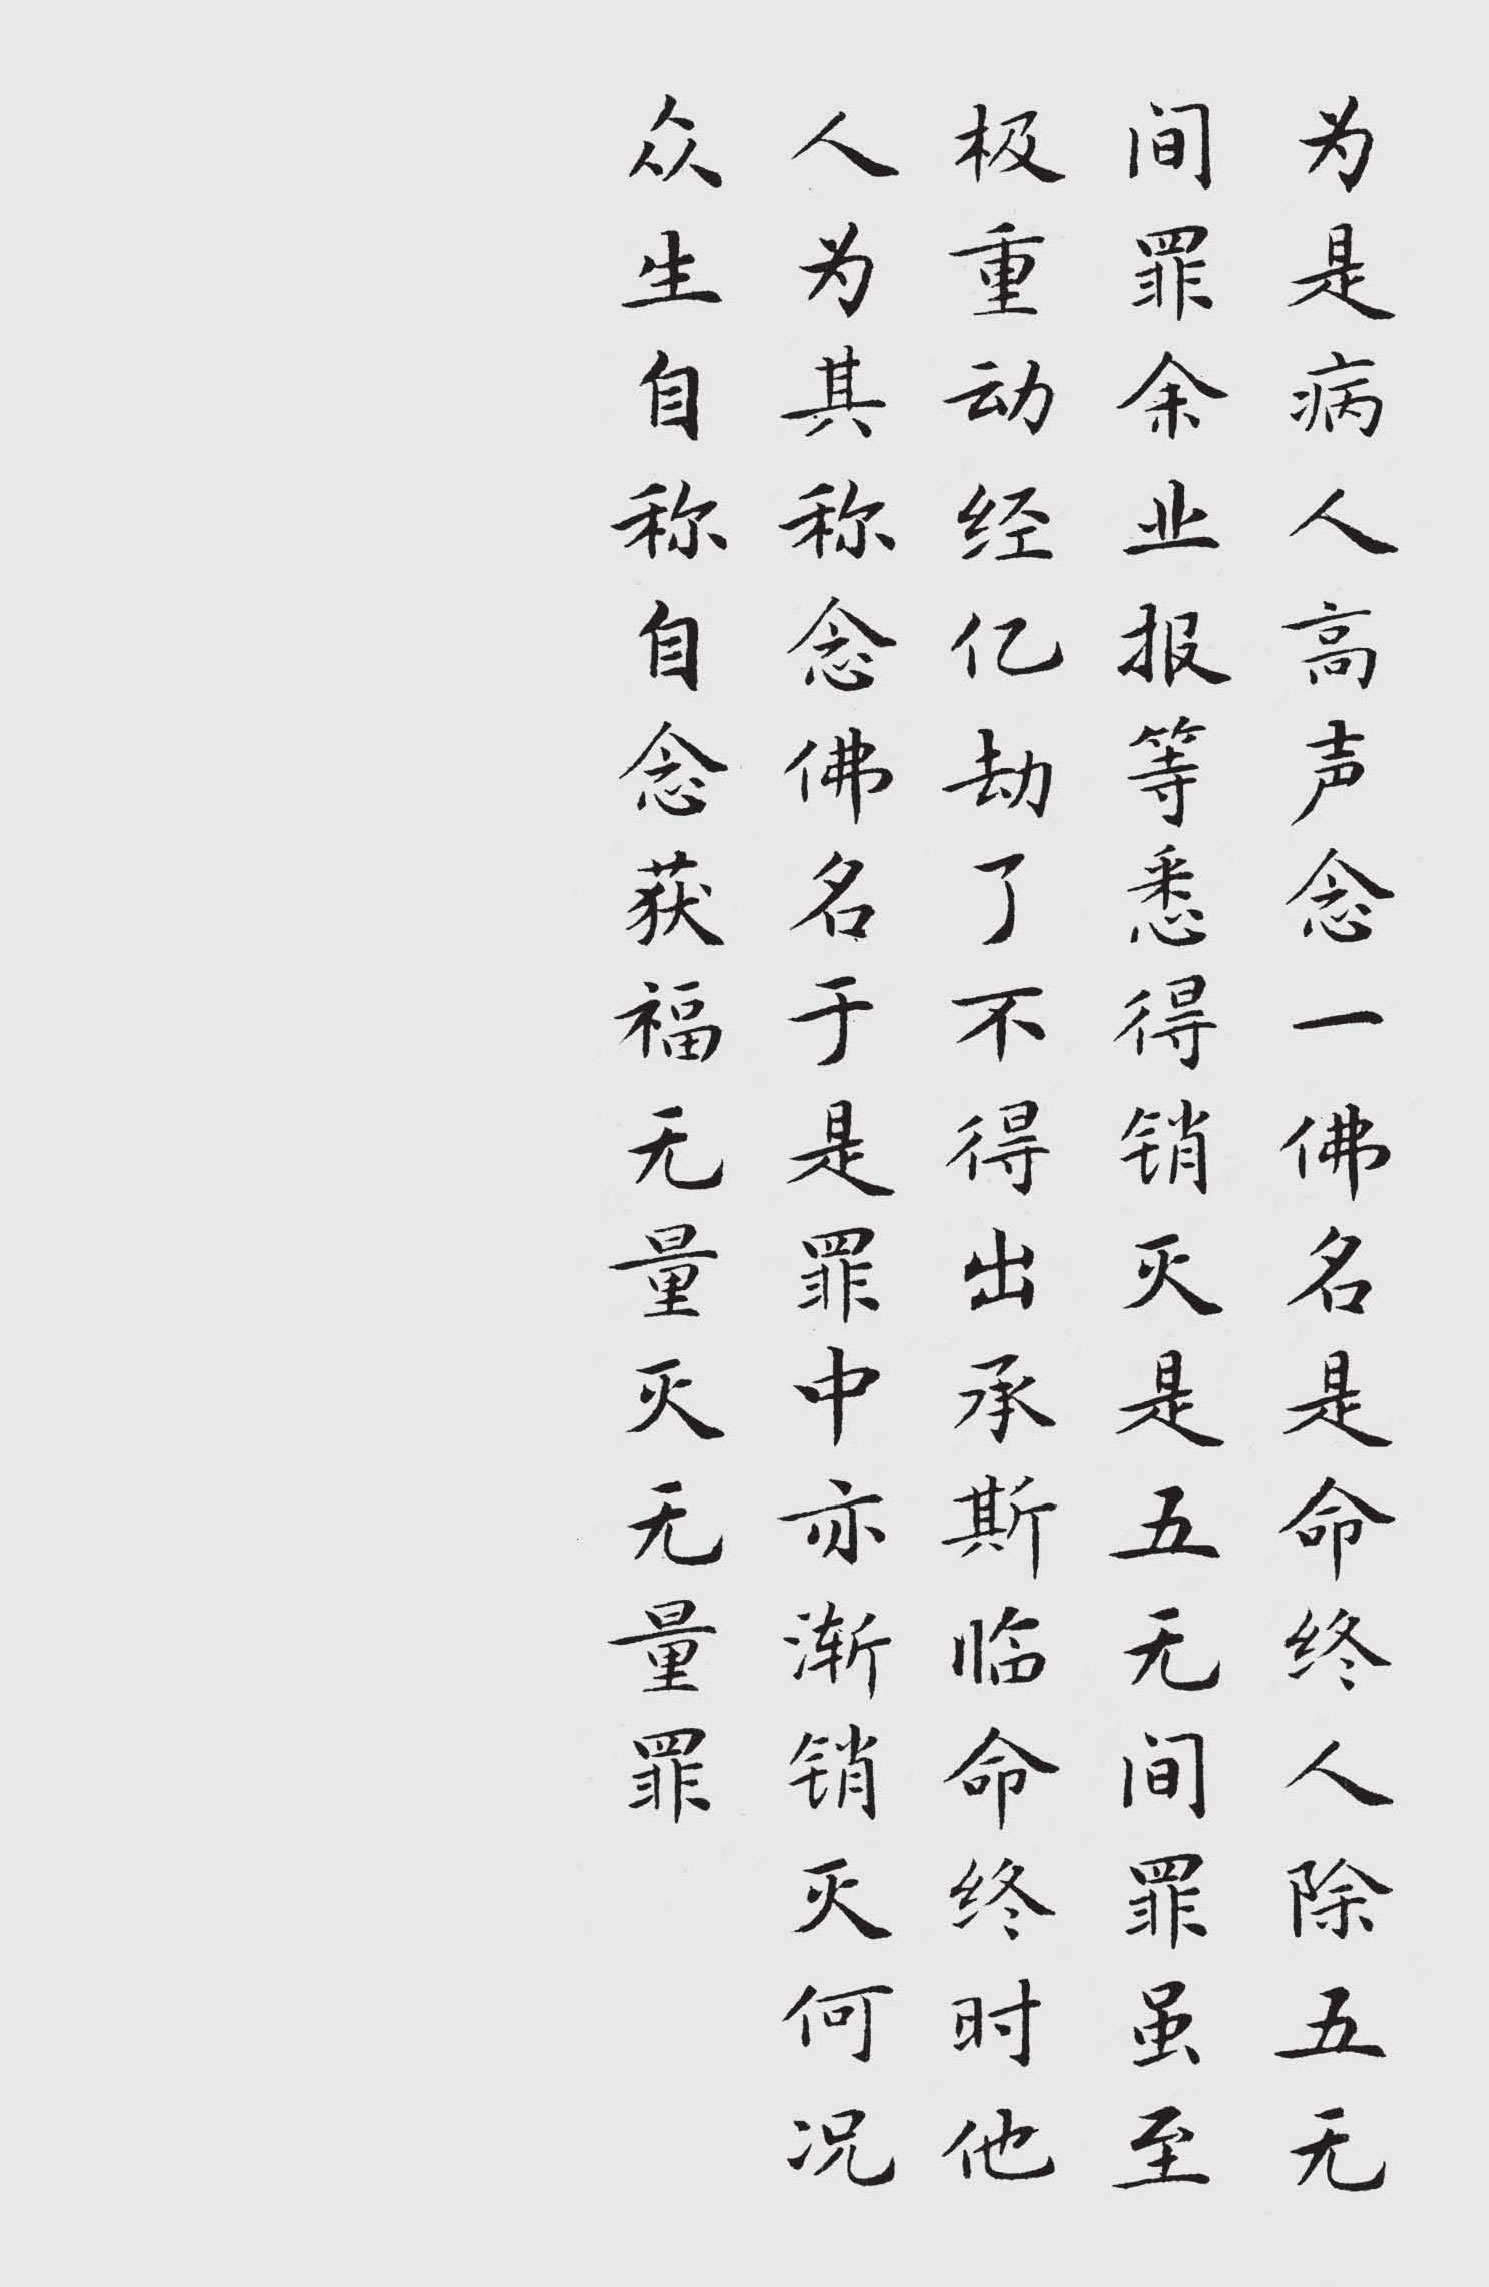 为是病人高声念一佛名是命终人除五无
间罪余业报等悉得销灭是五无间罪虽至
极重动经亿劫了不得出承斯临命终时他
人为其称念佛名于是罪中亦渐销灭何况
众生自称自念获福无量灭无量罪